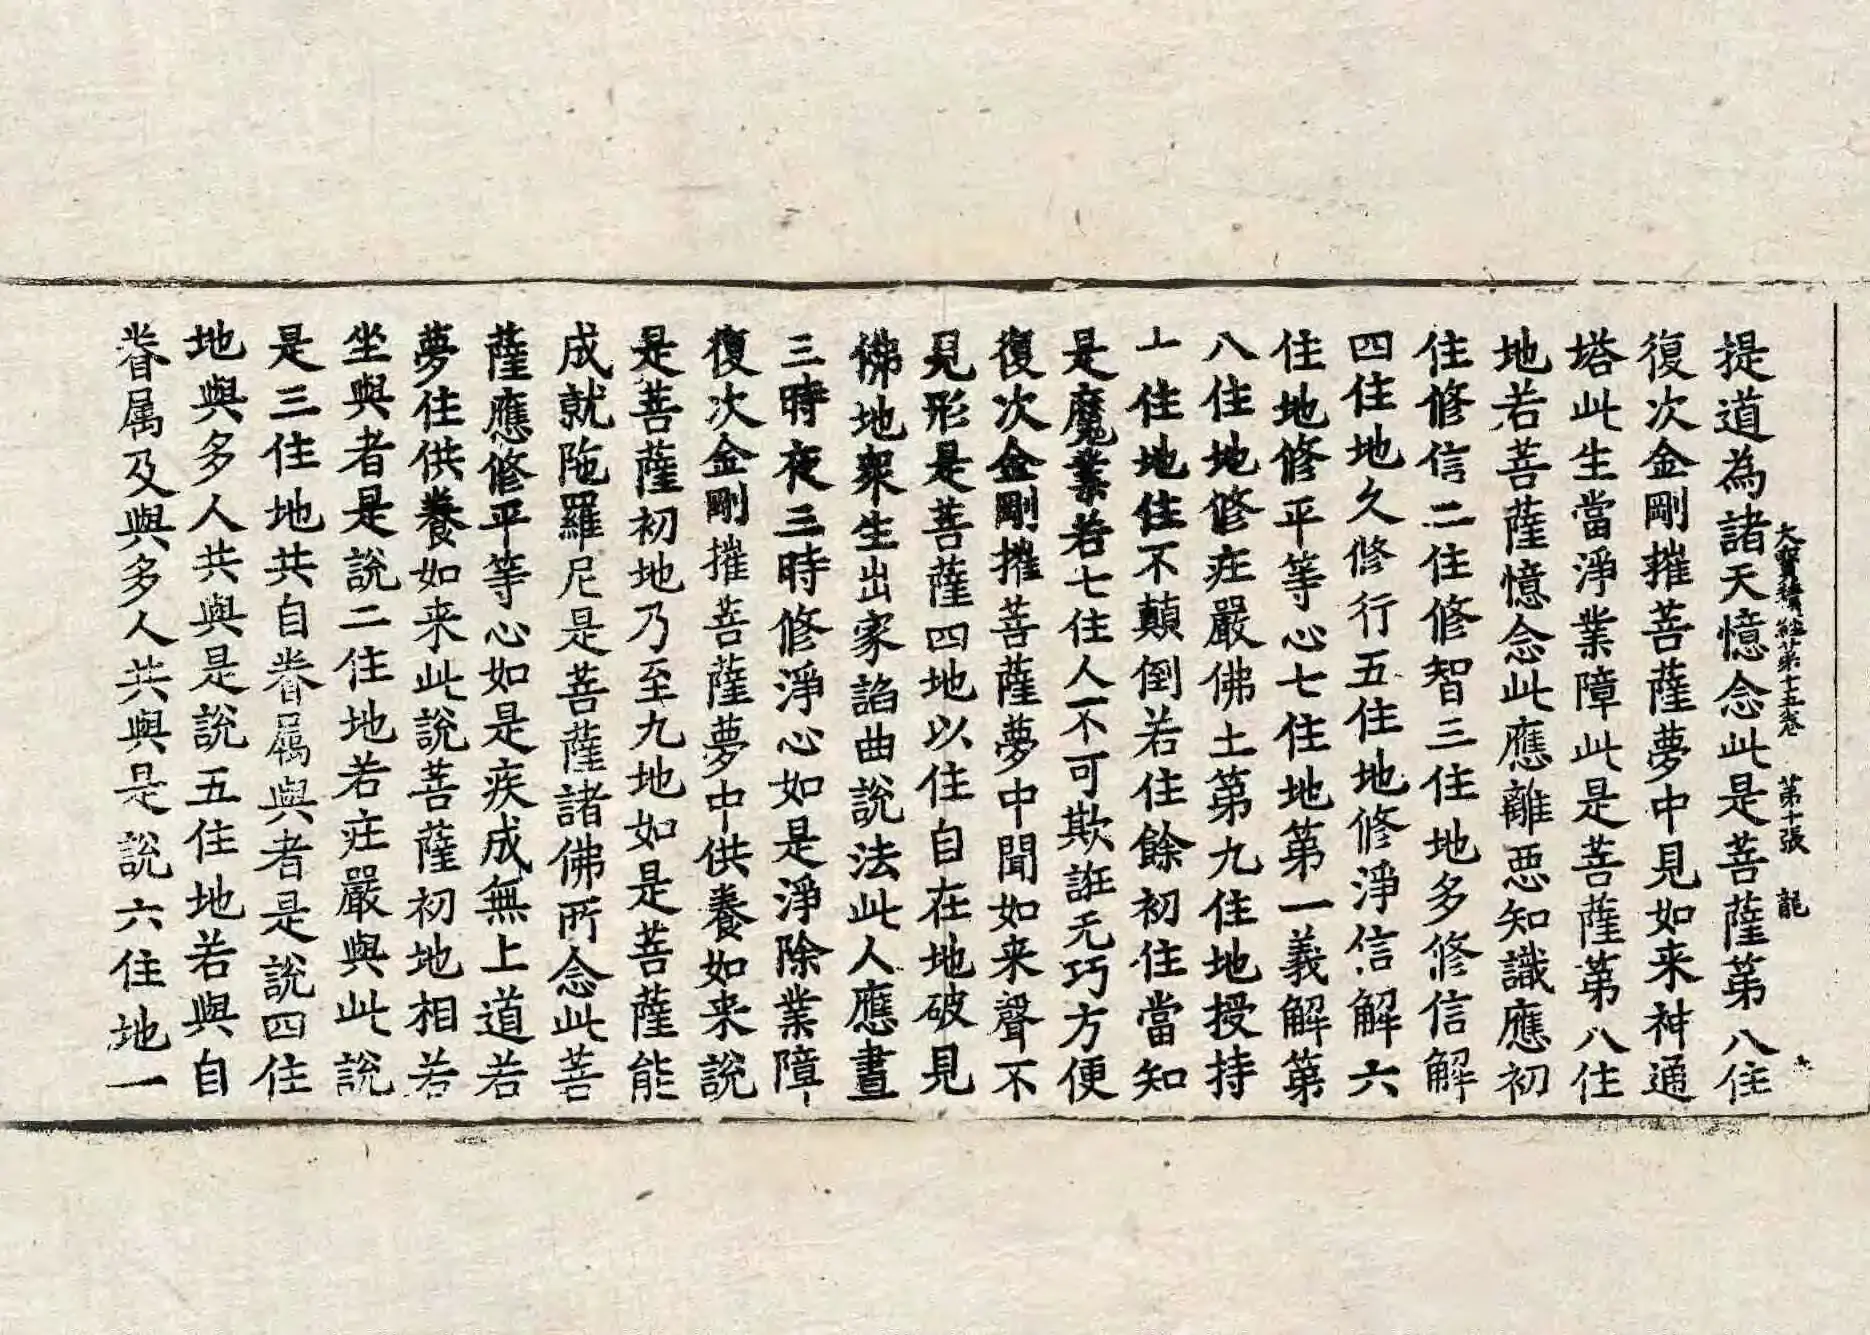 大寶積經第十五卷 第十張 龍
提道為諸天憶念此是菩薩第八住
復次金剛摧菩薩夢中見如来神通
塔此生當淨業障此是菩薩第八住
地若菩薩憶念此應離惡知識應初
住修信二住修智三住地多修信解
四住地久修行五住地修淨信解六
住地修平等心七住地第一義解第
八住地修庄嚴佛土第九住地授持
十住地住不顛倒若住餘初住當知
是魔業若七住人不可欺誑无巧方便
復次金剛摧菩薩夢中聞如来聲不
見形是菩薩四地以住自在地破見
佛地衆生出家諂曲說法此人應晝
三時夜三時修淨心如是淨除業障
復次金剛摧菩薩夢中供養如来說
是菩薩初地乃至九地如是菩薩能
成就陁羅尼是菩薩諸佛所念此菩
薩應修平等心如是疾成無上道若
夢住供養如来此說菩薩初地相若
坐與者是說二住地若庄嚴與此說
是三住地共自眷屬與者是說四住
地與多人共與是說五住地若與自
眷属及與多人共與是說六住地一